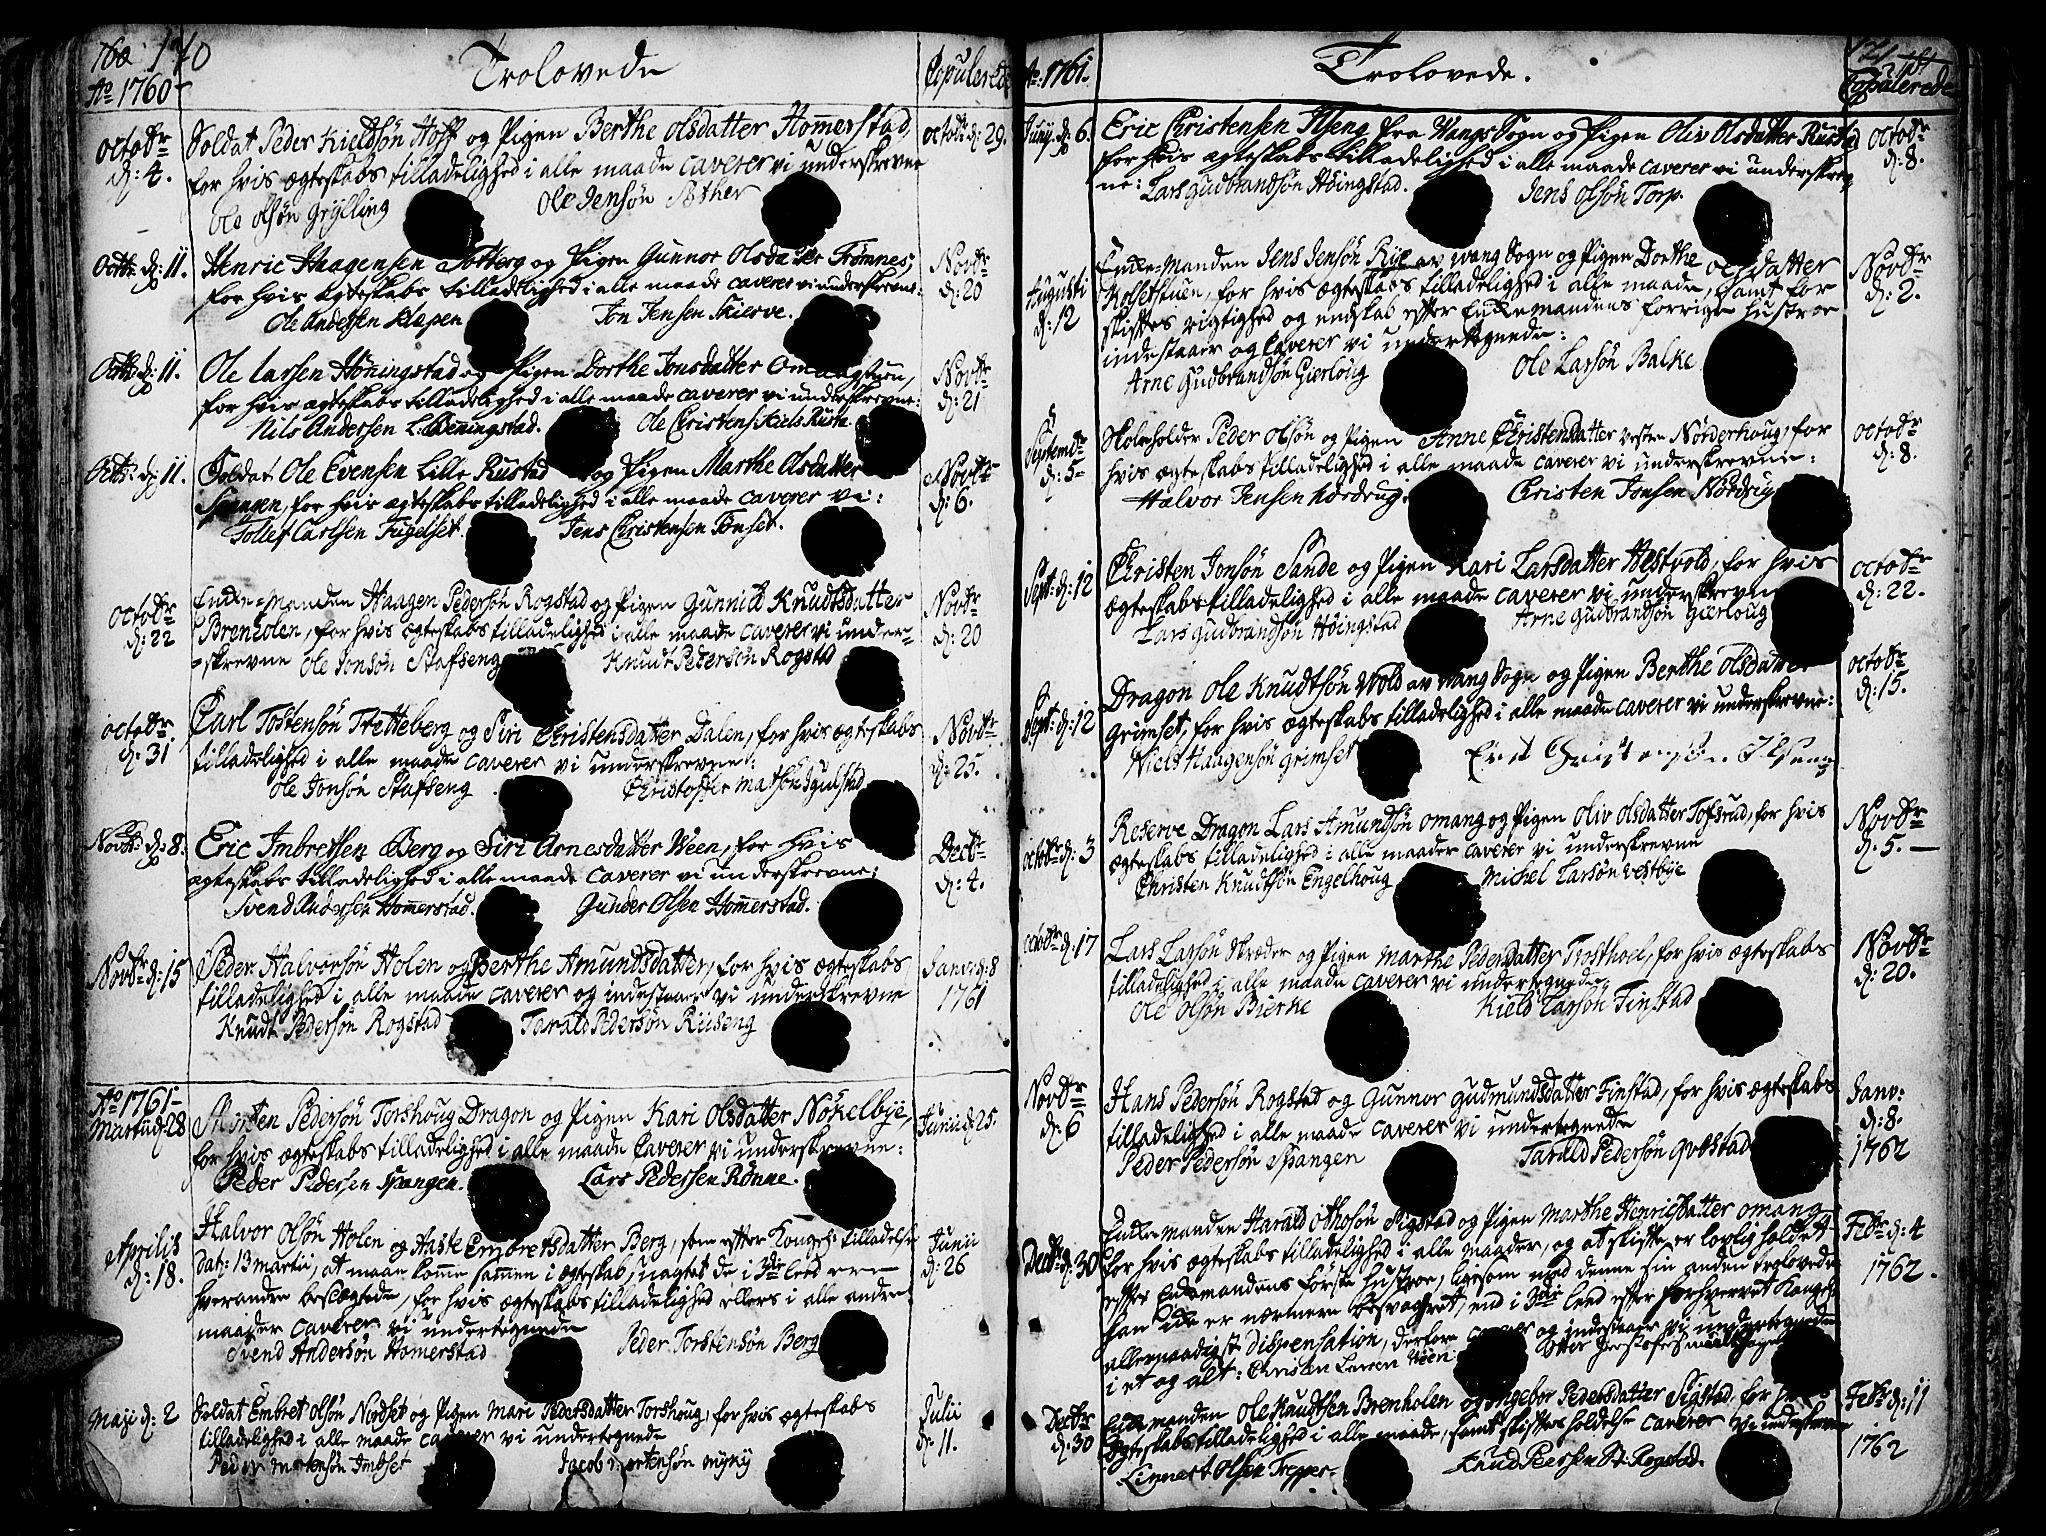 160 170
Trolovede
Copulerede
Ao 1760
Octobr: d: 4.
Soldat Peder Kieldsön Hoff og Pigen Berthe Olsdatter Homerstad,
for hvis ægteskabs tilladelighed i alle maade caverer vi underskrevne
Ole Olsön Grÿlling
Ole Jensön Sæther
Octobr: d: 29.
Octbr: d: 11.
Henric Haagensen Torberg og Pigen Gunnor Olsdatter Trømnes,
for hvis ægteskabs tilladelighed i alle maade caverer vi underskrevne:
Ole Andersen Klæpen
Jon Jensen Skierve.
Novbr d: 20
Octbr: d: 11.
Ole Larsen Höningstad og Pigen Dorthe Jonsdatter Omangstuen,
for hvis ægteskabs tilladelighed i alle maade caverer vi underskrevne:
Nils Andersen L: Deningstad.
Ole Christens: Niels Rusta
Novbr d: 21
Octbr: d: 11.
Soldat Ole Evensen Lille Rustad og Pigen Marthe Olsdatter
Spangen, for hvis ægteskabs tilladelighed i alle maade caverer vi:
Tollef Carlsen Fugelset.
Jens Christensen Tönset.
Novbr d: 6.
Octobr d: 22
Enke-Manden Haagen Pedersön Rogstad og Pigen Gunnild Knudtsdatter
Brenholen, for hvis ægteskabs tilladelighed i alle maade caverer vi under-
-skrevne Ole Jonsön Stafseng
Knudt Pedersön Rogstad
Novbr d: 20
Octobr. d: 31
Carl Tostensön Tretteberg og Siri Christensdatter Dalen, for hvis ægteskabs
tilladelighed i alle maade caverer vi underskrevne:
Ole Jonsön Stafseng
Christoffer Matsön Igulstad
Novbr d: 25.
Novbr: d: 8.
Eric Imbretsen Berg og Siri Arnesdatter Ween, for hvis
ægteskabs tilladelighed i alle maade caverer vi underskrevne:
Svend Andersen Homerstad.
Gunder Olsen Homerstad.
Decbr d: 4.
Novbr d: 15
Peder Halvorsön Holen og Berthe Amundsdatter, for hvis ægteskabs
tilladelighed i alle maade caverer og indestaaer vi underskrevne
Knudt Pedersön Rogstad
Tarald Pedersön Rüseng
Janv: d: 8
1761
Ao 1761
Martii d: 28
Morten Pedersön Torshoug Dragon og Pigen Kari Olsdatter Nökelbye,
for hvis ægteskabs tilladelighed i alle maade caverer vi underskrevne:
Peder Pedersen Spangen.
Lars Pedersen Rönne.
Junii d: 25.
Aprilis d: 18.
Halvor Olsön Holen og Aaske Embretsdatter Berg, som efter Kongel: tilladelse
dat: 13 martii, at maae komme sammen i ægteskab, uagtet de i 3die leed ere
hverandre beslægtede, for hvis ægteskabs tilladelighed ellers i alle andre
maader caverer vi undertegnede
Svend Andersön Homerstad
Peder Torstensön Berg
Junii d: 26
Maji d: 2
Soldat Embret Olsön Nordset og Pigen Mari Pedersdatter Torshoug, for hvis ægteskabs
tilladelighed i alle maade caverer vi undertegnede
Peder Mortensön Imbset
Jacob Mortensön Myhy
Julii d: 11.
Ao: 1761.
Trolovede.
171
Copulerede
Junj d: 6.
Eric Christensen Ilseng fra Vangs Sogn og Pigen Oliv Olsdatter Rustad
for hvis ægteskabs tilladelighed i alle maade caverer vi underskrev-
ne: Lars Gudbrandsön Höingstad.
Jens Olsön Torp.
Octobr d: 8.
Augusti d: 12
Enke-Manden Jens Jensön Rye av Wang Sogn og Pigen Dorthe Olsdatter
Kolsetstuen, for hvis ægteskabs tilladelighed i alle maade, samt for
skiftes rigtighed og endskab efter Enkemandens forrige hustroe
indestaaer og caverer vi undertegnede:
Arne Gudbrandsön Gierloug
Ole Larsön Balke
Novbr d: 2.
Septembr d: 5
Skoleholder Peder Olsön og Pigen Anne Christensdatter vestre Nörderhoug, for
hvis ægteskabs tilladelighed i alle maade caverer vi underskrevne:
Halvor Jensen Nordrug:
Christen Jonsen Nordrug
Octobr d: 8.
Sept: d: 12
Christen Jonsön Sande og Pigen Kari Larsdatter Hestvold, for hvis
ægteskabs tilladelighed i alle maade caverer vi underskrevne
Lars Gudbrandsön Höingstad
Arne Gudbrandsön Gierloug
Octobr d: 22.
Sept: d: 12
Dragon Ole Knudtsön Wold av Wang Sogn og Pigen Berthe Olsdatter
Grimset, for hvis ægteskabs tilladelighed i alle maade caverer vi underskrevne:
Niels Haagensön Grimset
Erik Christensøn Ilseng
Octobr d: 15.
Octobr d: 3
Reserve Dragon Lars Amundsön Omang og Pigen Oliv Olsdatter Tofsrud, for hvis
ægteskabs tilladelighed i alle maader caverer vi underskrevne
Christen Knudtsön Engelhoug
Michel Larsön Vestbÿe
Novbr d: 5.
Octobr d: 17
Lars Larsön Skræder og Pigen Marthe Pedersdatter Trosthoel, for hvis ægteskabs
tilladelighed i alle maade caverer vi undertegnede
Ole Olsön Bierke
Kield Larsön Finstad
Novbr d: 20.
Novbr d: 6
Hans Pedersön Rogstad og Gunnor Gudmundsdatter Finstad, for hvis ægteskabs
tilladelighed i alle maade caverer vi undertegnede
Peder Pedersön Spangen
Tarald Pedersön Qvæstad
Janv: d: 8.
1762
Decbr d: 30
Enke-manden Harald Othosön Sigstad og Pigen Marthe Henricsdatter Omang
for hvis ægteskabs tilladelighed i alle maader, og at skifte er lovlig holdet
efter Enkemandens förste hustroe, ligesom med denne sin anden trolovede
han icke er nærmere besvogret, end i 3die leed efter forhvervet Kongel:
allernaadigst dispensation, derfore caverer og indestaaer vi undertegnede
i et og alt: Christen Larsen Ween:
Febr d: 4
1762.
Decbr d: 30
Enkemanden Ole Knudtsen Brenholen og Ingebor Pedersdatter Sigstad for hvis
ægteskabs tilladelighed i alle maade, samt skiftes holdelse caverer vi underskrevne
Linnert Olsen Trepper
Knud Peersen St: Rogstad.
Febr d: 11
1762